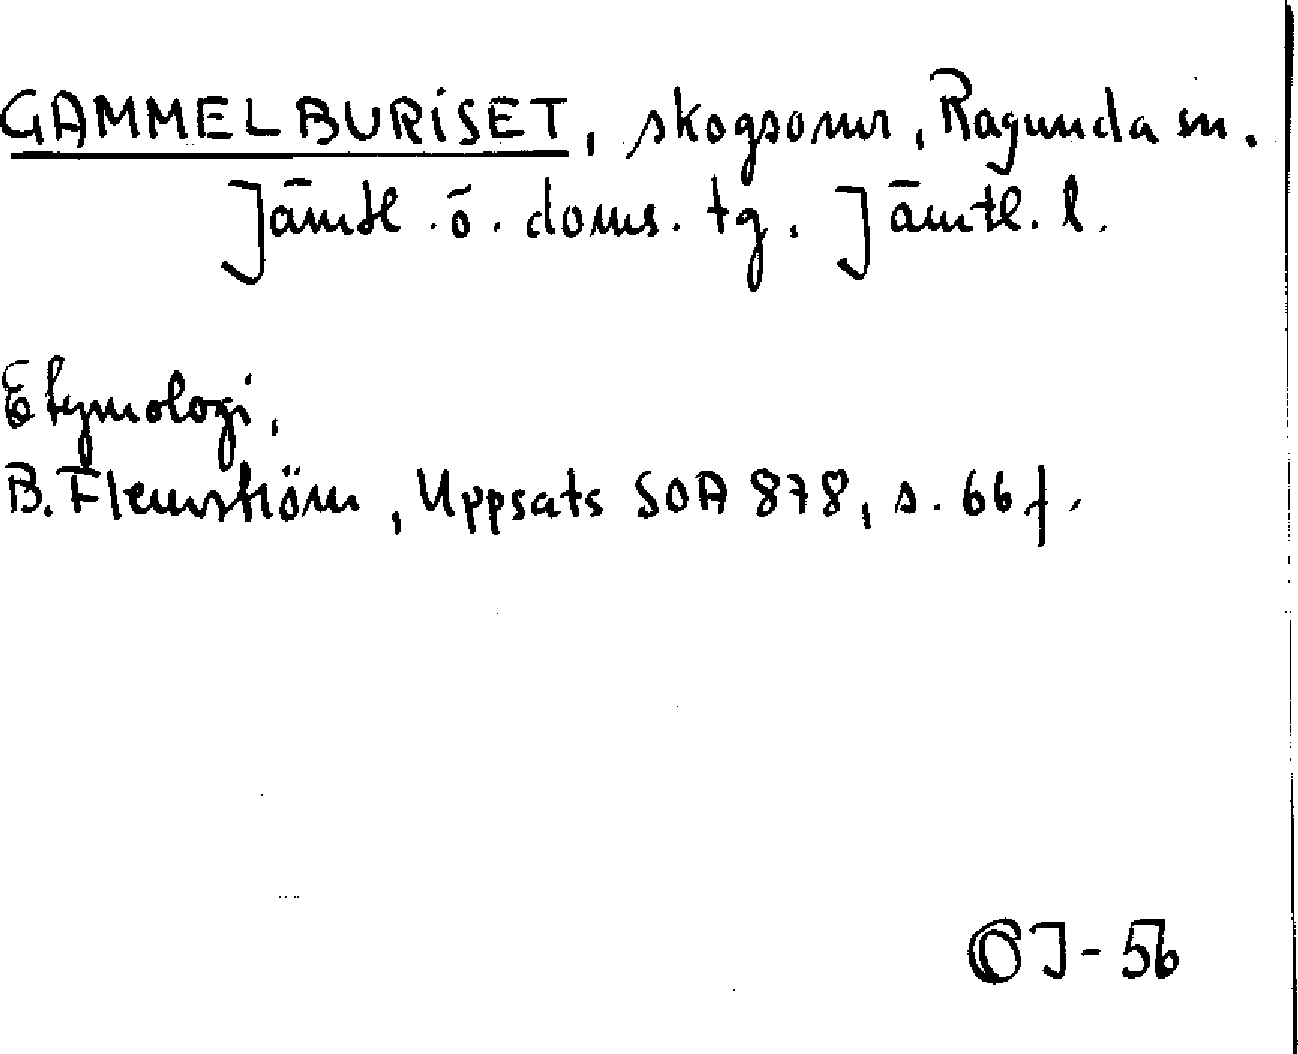 GAMMELBURISET, skogsområ, Ragunda sn.
Jämtl. ö. doms. tg. Jämtl. l.
Etymologi.
B. Flemström, Uppsats SOA 878, s. 66 f.
CJ-56